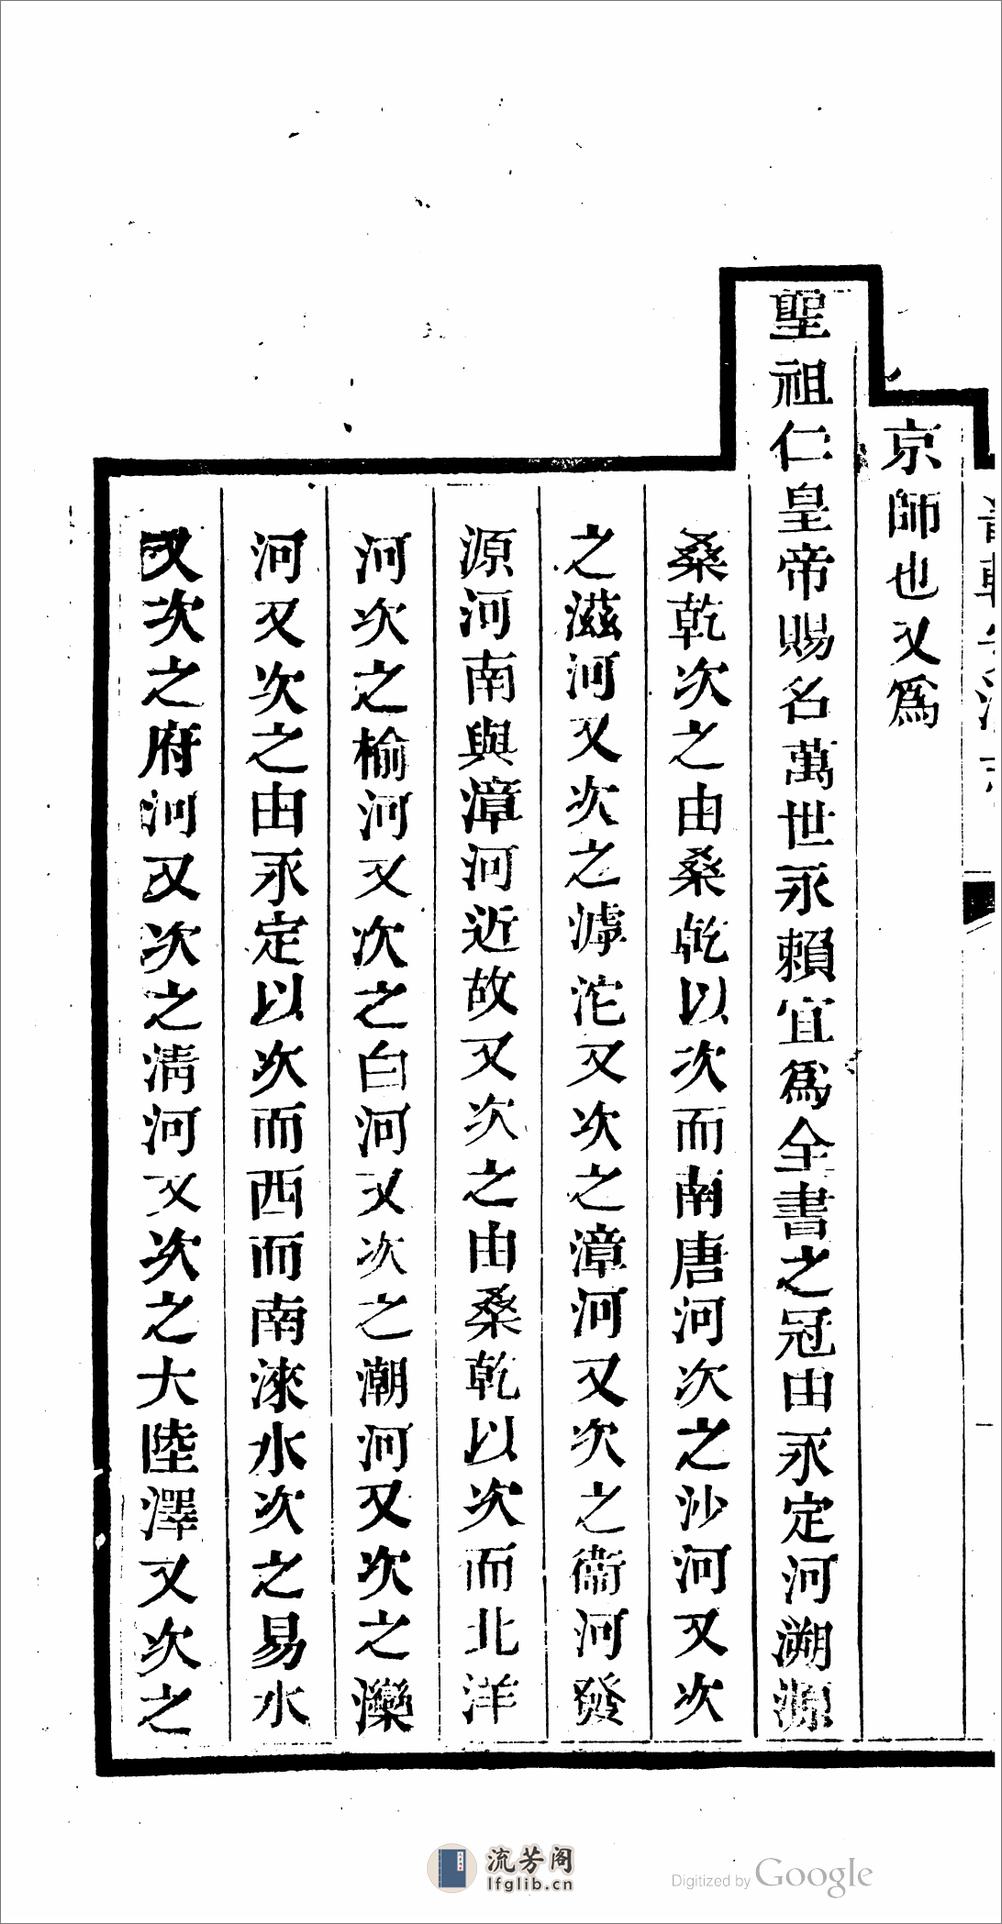 京師也又爲
聖祖仁皇帝賜名萬世永賴宜爲全書之冠由永定河溯源
桑乾次之由桑乾以次而南唐河次之沙河又次
之滋河又次之滹沱又次之漳河又次之衞河發
源河南與漳河近故又次之由桑乾以次而北洋
河次之榆河又次之白河又次之潮河又次之灤
河又次之由永定以次而西而南淶水次之易水
又次之府河又次之淸河又次之大陸澤又次之
流芳阁
lfglib.cn
Digitized by Google